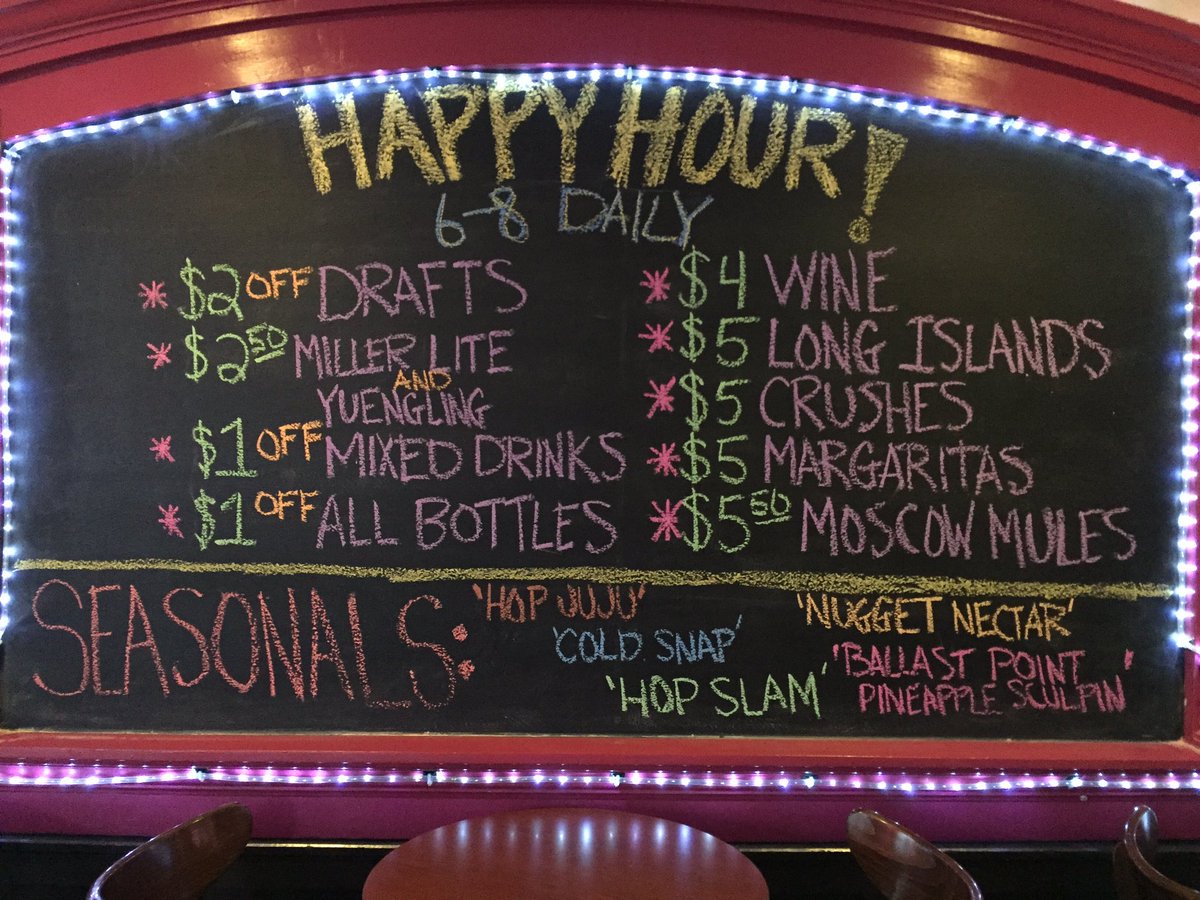 HAPPY HOUR!
6-8 DAILY
* $2 OFF DRAFTS
* $2.50 MILLER LITE
AND
YUENGLING
* $1 OFF MIXED DRINKS
* $1 OFF ALL BOTTLES
* $4 WINE
* $5 LONG ISLANDS
* $5 CRUSHES
* $5 MARGARITAS
* $5.50 MOSCOW MULES
SEASONALS:
'HOP JUJU'
'COLD SNAP'
'HOP SLAM'
'NUGGET NECTAR'
'BALLAST POINT
PINEAPPLE SCULPIN'